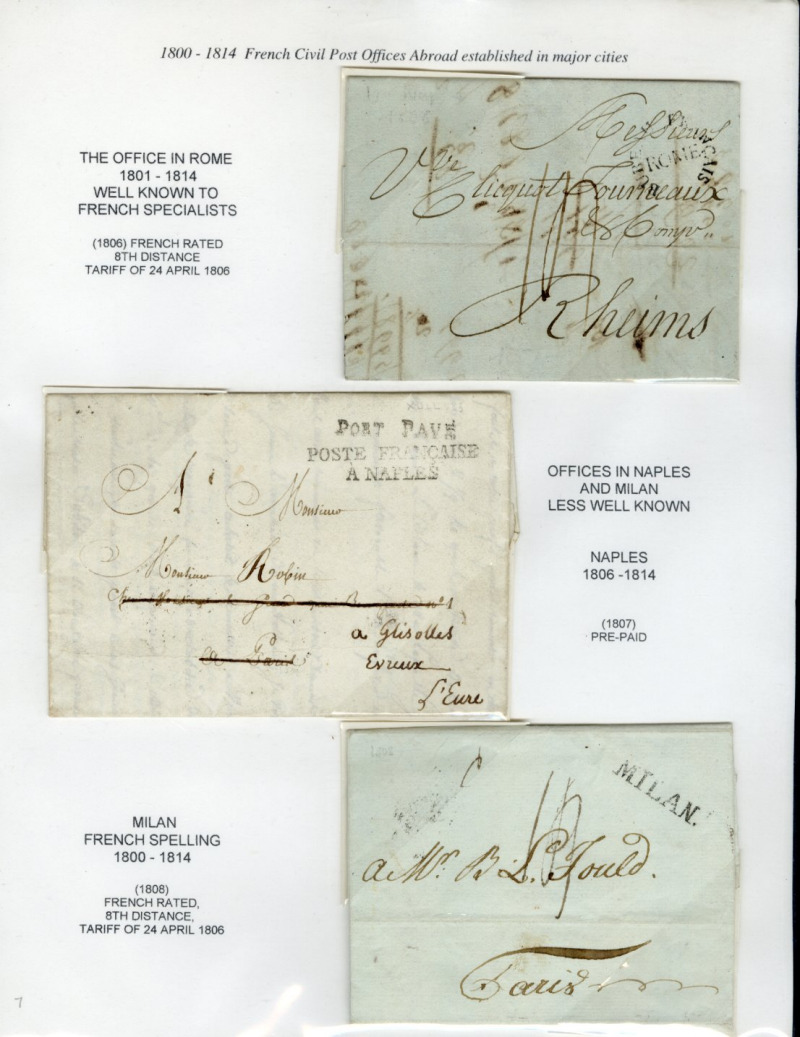 1800 - 1814 French Civil Post Offices Abroad established in major cities
THE OFFICE IN ROME
1801 - 1814
WELL KNOWN TO
FRENCH SPECIALISTS
(1806) FRENCH RATED
8TH DISTANCE
TARIFF OF 24 APRIL 1806
Messieurs
ROME
Vve Clicquot Fourneaux
& Comp.
Rheims
PORT PAYÉ
POSTE FRANÇAISE
À NAPLES
A Monsieur
Monsieur Robin
a Paris
a Glisolles
Evreux
L'Eure
OFFICES IN NAPLES
AND MILAN
LESS WELL KNOWN
NAPLES
1806 -1814
(1807)
PRE-PAID
MILAN
FRENCH SPELLING
1800 - 1814
(1808)
FRENCH RATED,
8TH DISTANCE,
TARIFF OF 24 APRIL 1806
MILAN.
a Mr. B L. Fould.
Paris
7